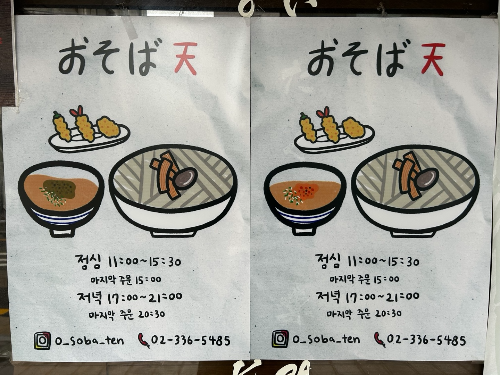 おそば 天
점심 11:00~15:30
마지막 주문 15:00
저녁 17:00~21:00
마지막 주문 20:30
o_soba_ten 02-336-5485
おそば 天
점심 11:00~15:30
마지막 주문 15:00
저녁 17:00~21:00
마지막 주문 20:30
o_soba_ten 02-336-5485